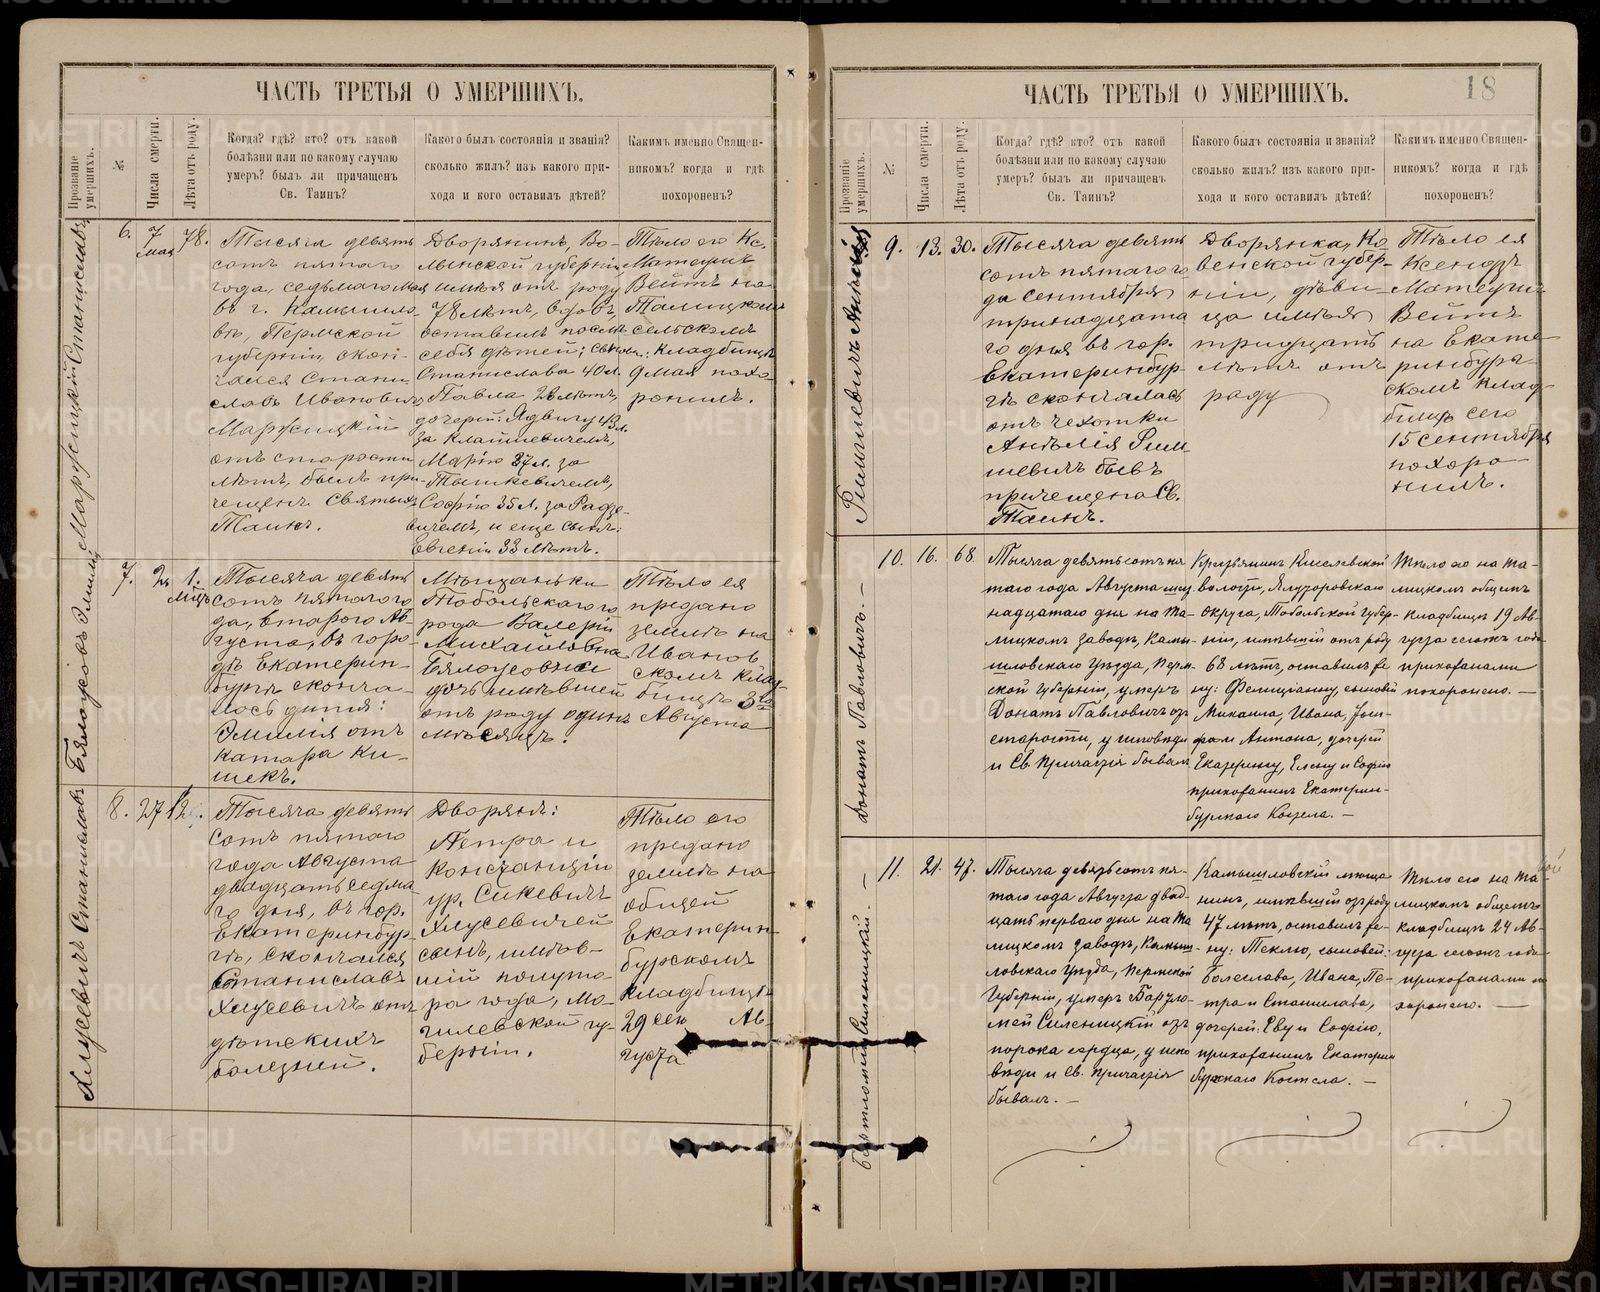 ЧАСТЬ ТРЕТЬЯ О УМЕРШИХЪ.
Прозваніе умершихъ.
№
Числа смерти.
Лѣта отъ роду.
Когда? гдѣ? кто? отъ какой
болѣзни или по какому случаю
умеръ? былъ ли причащенъ
Св. Таинъ?
Какого былъ состоянія и званія?
сколько жилъ? изъ какого при-
хода и кого оставилъ дѣтей?
Какимъ именно Священ-
никомъ? когда и гдѣ
похороненъ?
Станиславъ
6.
7
мая
78.
Тысяча девять
сотъ пятаго
года, седьмаго мая
въ г. Камышло-
вѣ, Пермской
губерніи, скон-
чался Стани-
славъ Ивановичъ
отъ старости
лѣтъ, былъ при-
чещенъ Святыхъ
Таинъ.
Дворянинъ, Во-
лынской губерніи
имѣя отъ роду
78 лѣтъ, вдовъ,
оставилъ послѣ
себя дѣтей; сынов.:
Станислава 40 л.
Павла 26 лѣтъ,
дочерей: Ядвигу 43 л.
за
Марію 37 л. за
Тышкевичемъ,
Софію 35 л. за Радзе-
вичемъ, и еще сынъ:
Евгеній 33 лѣтъ.
Тѣло его Кс.
Матеушъ
Вейтъ на
Талицкомъ
сельскомъ
кладбищѣ
9 мая похо-
ронилъ.
Бялоусовъ Эмилія
7.
2
1.
Мѣс.
Тысяча девять
сотъ пятаго го
да, втораго Ав-
густа, въ горо-
дѣ Екатерин-
бургѣ сконча-
лось дитя:
Эмилія отъ
катара ки-
шекъ.
Мѣщанки
Тобольскаго го
рода Валеріи
Михайловны
Бялоусовой
дочь имѣвшей
отъ роду одинъ
мѣсяцъ.
Тѣло ея
предано
землѣ на
Иванов
скомъ клад-
бищѣ 3го
Августа
Хлусевичъ Станиславъ
8.
27
1½.
Тысяча девять
сотъ пятаго
года Августа
двадцать седма-
го дня, въ гор.
Екатеринбур-
гѣ, скончался
Станиславъ
Хлусевичъ отъ
дѣтскихъ
болезней.
Дворянъ:
Петра и
Констанціи
ур. Сикевичъ
Хлусевичей
сынъ, имѣв-
шій полуто-
ра года, Мо-
гилевской гу-
берніи.
Тѣло его
предано
землѣ на
общей
Екатерин-
бурскомъ
кладбищѣ
29 сего Ав-
густа
ЧАСТЬ ТРЕТЬЯ О УМЕРШИХЪ.
18
Прозваніе умершихъ.
№
Числа смерти.
Лѣта отъ роду.
Когда? гдѣ? кто? отъ какой
болѣзни или по какому случаю
умеръ? былъ ли причащенъ
Св. Таинъ?
Какого былъ состоянія и званія?
сколько жилъ? изъ какого при-
хода и кого оставилъ дѣтей?
Какимъ именно Священ-
никомъ? когда и гдѣ
похороненъ?
9.
13.
30.
Тысяча девять
сотъ пятаго го
да Сентября
тринадцата
го дня въ гор.
Екатеринбур-
гѣ скончалась
отъ чехотки
Анелія Рим
шевичъ бывъ
причещена Св.
Таинъ.
Дворянка, Ко
венской губер-
ніи, дѣви-
ца имѣя
тридцать
лѣтъ отъ
роду
Тѣло ея
Ксендзъ
Матеушъ
Вейтъ
на Екате
ринбург-
скомъ клад-
бищѣ сего
15 Сентября
похоро-
нилъ.
Донатъ Павловичъ. -
10.
16.
68
Тысяча девятьсотъ пя
таго года Августа шест
надцатаго дня на Та-
лицкомъ заводѣ, Камы-
шловскаго Уѣзда, Перм-
ской Губерніи, умеръ
Донатъ Павловичъ отъ
старости, у исповѣди
и Св. Причастія бывалъ
Крестьянинъ Киселевской
волости, Ялуторовскаго
округа, Тобольской Губер-
ніи, имѣвшій отъ роду
68 лѣтъ, оставилъ же
ну: Фелиціанну, сыновей
Михаила, Ивана,
Антона, дочерей
Екатерину, Елену и Софію
прихожанинъ Екатерин-
бургскаго Костела. -
Тѣло его на Та-
лицкомъ общемъ
кладбищѣ 19 Ав-
густа сегожъ года
прихожанами
похоронено. -
Бартоломей Силеницкій. -
11.
21.
47.
Тысяча девятьсотъ пя-
таго года Августа двад-
цать перваго дня на Та
лицкомъ Заводѣ, Камыш-
ловскаго Уѣзда, Пермской
Губерніи, умеръ Бартоло-
мей Силеницкій отъ
порока сердца, у испо
вѣди и Св. Причастія
бывалъ. -
Камышловскій мѣща
нинъ, имѣвшій отъ роду
47 лѣтъ, оставилъ же-
ну: Теклю, сыновей:
Болеслава, Ивана, Пе-
тра и Станислава,
дочерей: Еву и Софію,
прихожанинъ Екатерин
бургскаго Костела. -
Тѣло его на Та-
лицкомъ общемъ
кладбищѣ 24 Ав-
густа сегожъ года
прихожанами по
хоронено. -
METRIKI.GASO-URAL.RU